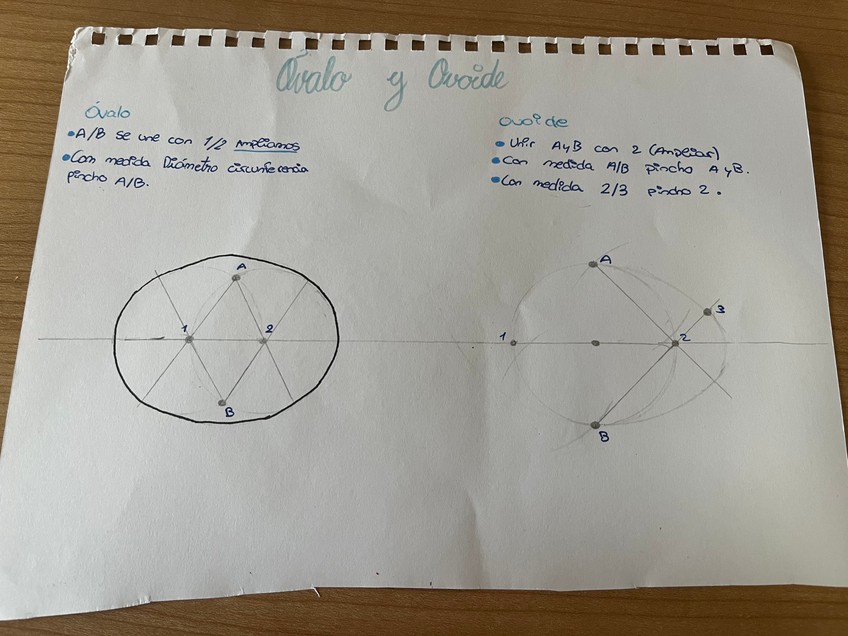 Óvalo y Ovoide
Óvalo
• A/B se une con 1/2 Ampliamos
• Con medida Diámetro circunferencia
pincho A/B.
Ovoide
• Unir A y B con 2 (Ampliar)
• Con medida A/B pincho A y B.
• Con medida 2/3 pincho 2.
A
1
2
B
A
3
1
2
B